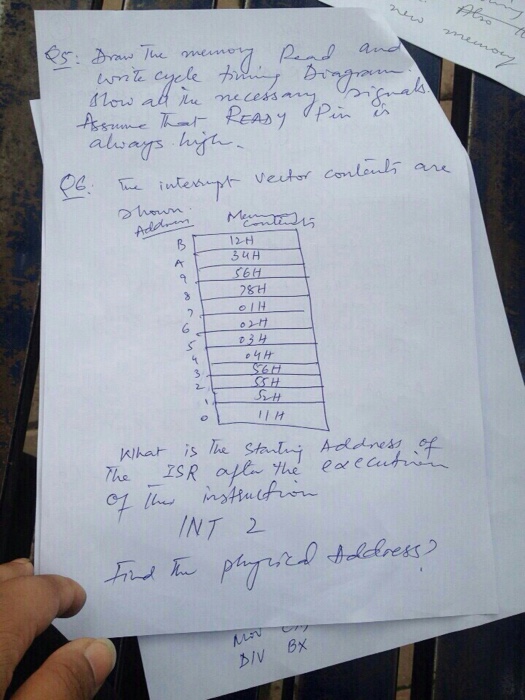 new
Also
memory
Q5: Draw The memory Read and
write cycle timing Diagram.
Show all the necessary signals.
Assume That READY Pin is
always high.
Q6: The interrupt vector contents are
shown.
Address Memory contents
B 12H
A 34H
9 56H
8 78H
7 01H
6 02H
5 03H
4 04H
3 56H
2 55H
1 52H
0 11H
What is The Starting Address of
The ISR after the execution
of this instruction
INT 2
Find The physical Address?
Mov
DIV BX